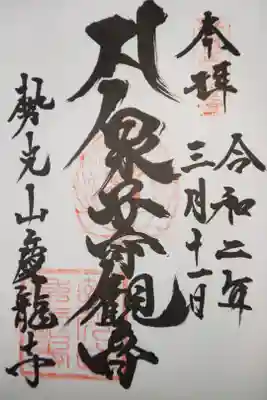 奉拝
令和二年
三月十一日
泉子安観音
勢光山慶龍寺